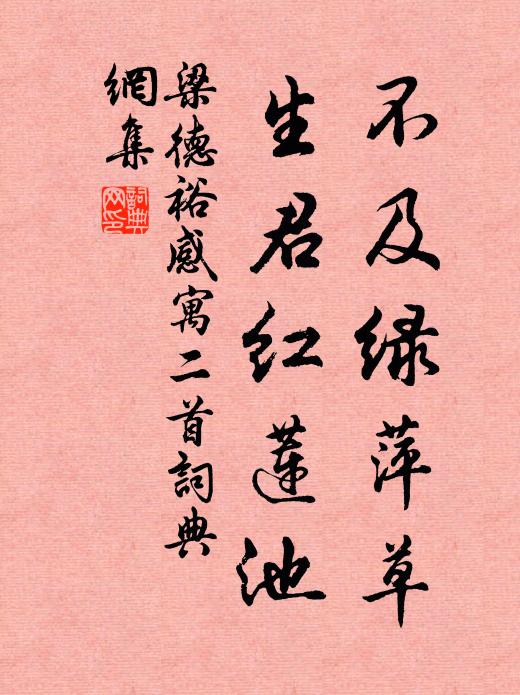 不及绿萍草
生君红莲池
梁德裕感寓二首詞典
網集
詞典网印